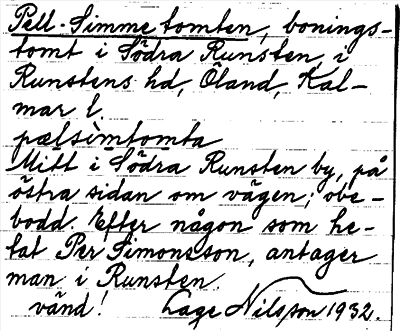 Pell-Simmetomten, bonings-
tomt i Södra Runsten, i
Runstens hd, Öland, Kal-
mar l.
pælsimtomta
Mitt i Södra Runsten by, på
östra sidan om vägen; obe-
bodd. Efter någon som he-
tat Per Simonsson, antager
man i Runsten.
vänd! Lage Nilsson 1932.